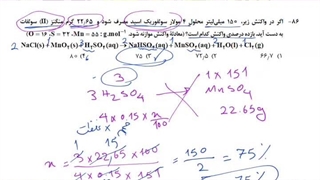 ۸۶- اگر در واکنش زیر، ۱۵۰ میلی‌لیتر محلول ۴ مولار سولفوریک اسید مصرف شود و ۲۲,۶۵ گرم منگنز (II) سولفات
به دست آید، بازده درصدی واکنش کدام است؟ (معادله واکنش موازنه شود. O = ۱۶, S = ۳۲, Mn = ۵۵ : g.mol⁻¹)
2 NaCl(s) + MnO₂(s) + 3 H₂SO₄(aq) → 2 NaHSO₄(aq) + MnSO₄(aq) + 2 H₂O(l) + Cl₂(g)
۶۶,۷ (۱ ۷۵ (۲ ۷۲,۵ (۳
3
1 × 151
3 H₂SO₄ MnSO₄
4 × 0.15 × x/100 22.65 g
x = 3 × 22.65 × 100 / 4 × 0.15 × 151 = 150/2 = 75 %
75 %